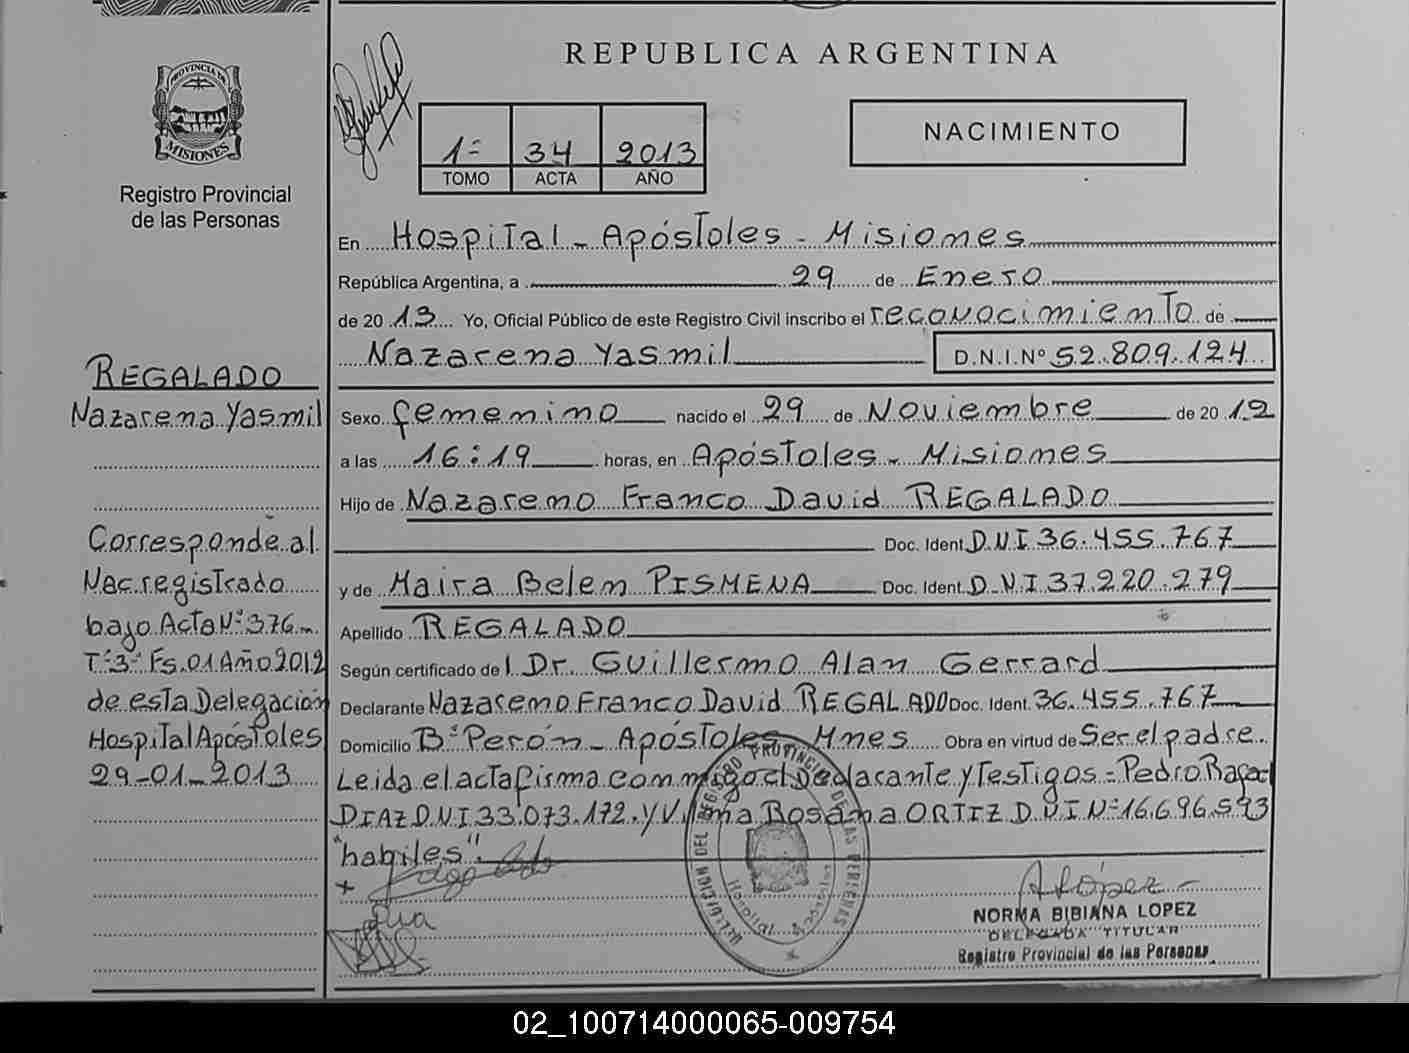 REPUBLICA ARGENTINA
PROVINCIA DE
MISIONES
Registro Provincial
de las Personas
1º 34 2013
TOMO ACTA AÑO
NACIMIENTO
En Hospital - Apóstoles - Misiones
República Argentina, a 29 de Enero
de 2013 Yo, Oficial Público de este Registro Civil inscribo el reconocimiento de
Nazarena Yasmil D.N.I.Nº 52.809.124
Sexo femenino nacido el 29 de Noviembre de 2012
a las 16:19 horas, en Apóstoles - Misiones
Hijo de Nazareno Franco David REGALADO
Doc. Ident. D.N.I 36.455.767
y de Maira Belen PISMENA Doc. Ident. D.N.I 37.220.279
Apellido REGALADO
Según certificado de l Dr. Guillermo Alan Gerrard
Declarante Nazareno Franco David REGALADO Doc. Ident. 36.455.767
Domicilio Bº Perón - Apóstoles Mnes Obra en virtud de Ser el padre.
Leida el acta firma conmigo el Declarante y Testigos = Pedro Rafael
DIAZ D.N.I 33.073.172. y Vilma Rosana ORTIZ D.N.I Nº 16.696.593
"habiles".
REGALADO
Nazarena Yasmil
Corresponde al
Nac registrado
bajo Acta Nº 376
Tº 3º Fs. 01 Año 2012
de esta Delegación
Hospital Apóstoles
29-01-2013
DELEGACION DEL REGISTRO PROVINCIAL DE LAS PERSONAS
Hospital Apóstoles
NORMA BIBIANA LOPEZ
DELEGADA TITULAR
Registro Provincial de las Personas
02_100714000065-009754